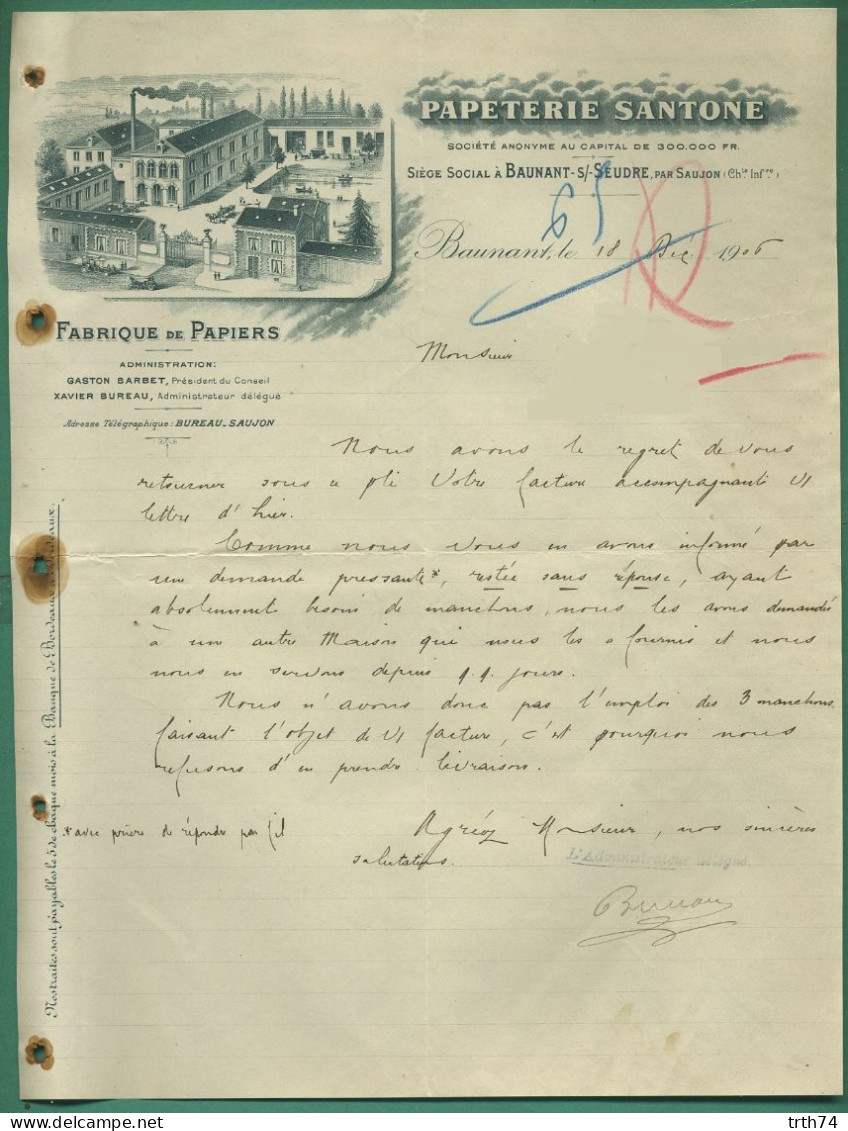 PAPETERIE SANTONE
SOCIÉTÉ ANONYME AU CAPITAL DE 300.000 FR.
SIÈGE SOCIAL À BAUNANT-S/-SEUDRE, PAR SAUJON (Chte Infre)
65
Baunant, le 18 Déc 1906
FABRIQUE DE PAPIERS
ADMINISTRATION:
GASTON BARBET, Président du Conseil
XAVIER BUREAU, Administrateur délégué
Adresse Télégraphique: BUREAU-SAUJON
Monsieur
Nous avons le regret de vous
retourner sous ce pli votre facture accompagnant V/
lettre d'hier.
Comme nous vous en avons informé par
un demande pressante*, restée sans réponse, ayant
absolument besoin de manchons, nous les avons demandés
à un autre Maison qui nous les a fournis et nous
nous en servons depuis q.q. jours.
Nous n'avons donc pas l'emploi des 3 manchons
faisant l'objet de V/ facture, c'est pourquoi nous
refusons d'en prendre livraison.
* avec prière de répondre par fil
Agréez Monsieur, nos sincères
salutations.
L'Administrateur délégué.
Bureau
Nos traites sont payables le 5 de chaque mois à la Banque de Bordeaux à Bordeaux.
trth74